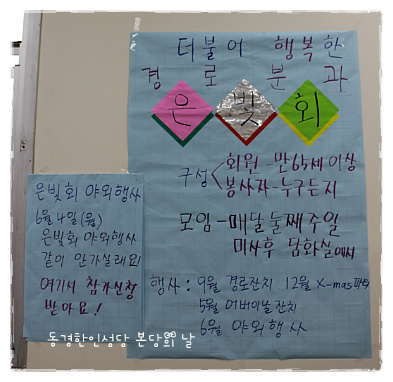 더불어 행복한
경로분과
은빛회
구성 < 회원 - 만 65세 이상
봉사자 - 누구든지
모임 - 매달 둘째 주일
미사후 담화실에서
행사 : 9월 경로잔치 12월 X-mas 파티
5월 어버이날 잔치
6월 야외행사
은빛회 야외행사
6월 4일 (월)
은빛회 야외행사
같이 안가실래요!
여기서 참가신청
받아요!
동경한인성당 본당의 날